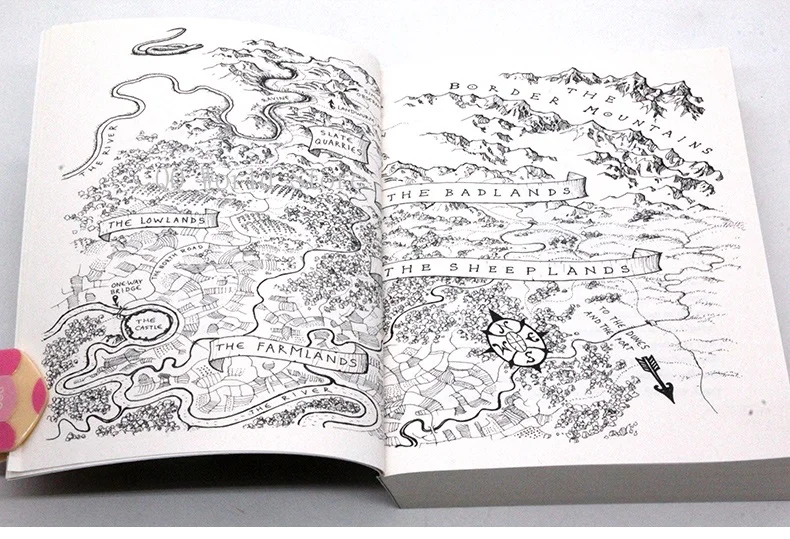 THE
BORDER MOUNTAINS
RAVINE
THE RIVER
SLATE
QUARRIES
THE BADLANDS
THE LOWLANDS
NORTH ROAD
THE SHEEPLANDS
ONE WAY
BRIDGE
THE
CASTLE
TO THE DUNES
AND THE PORT
THE FARMLANDS
THE RIVER